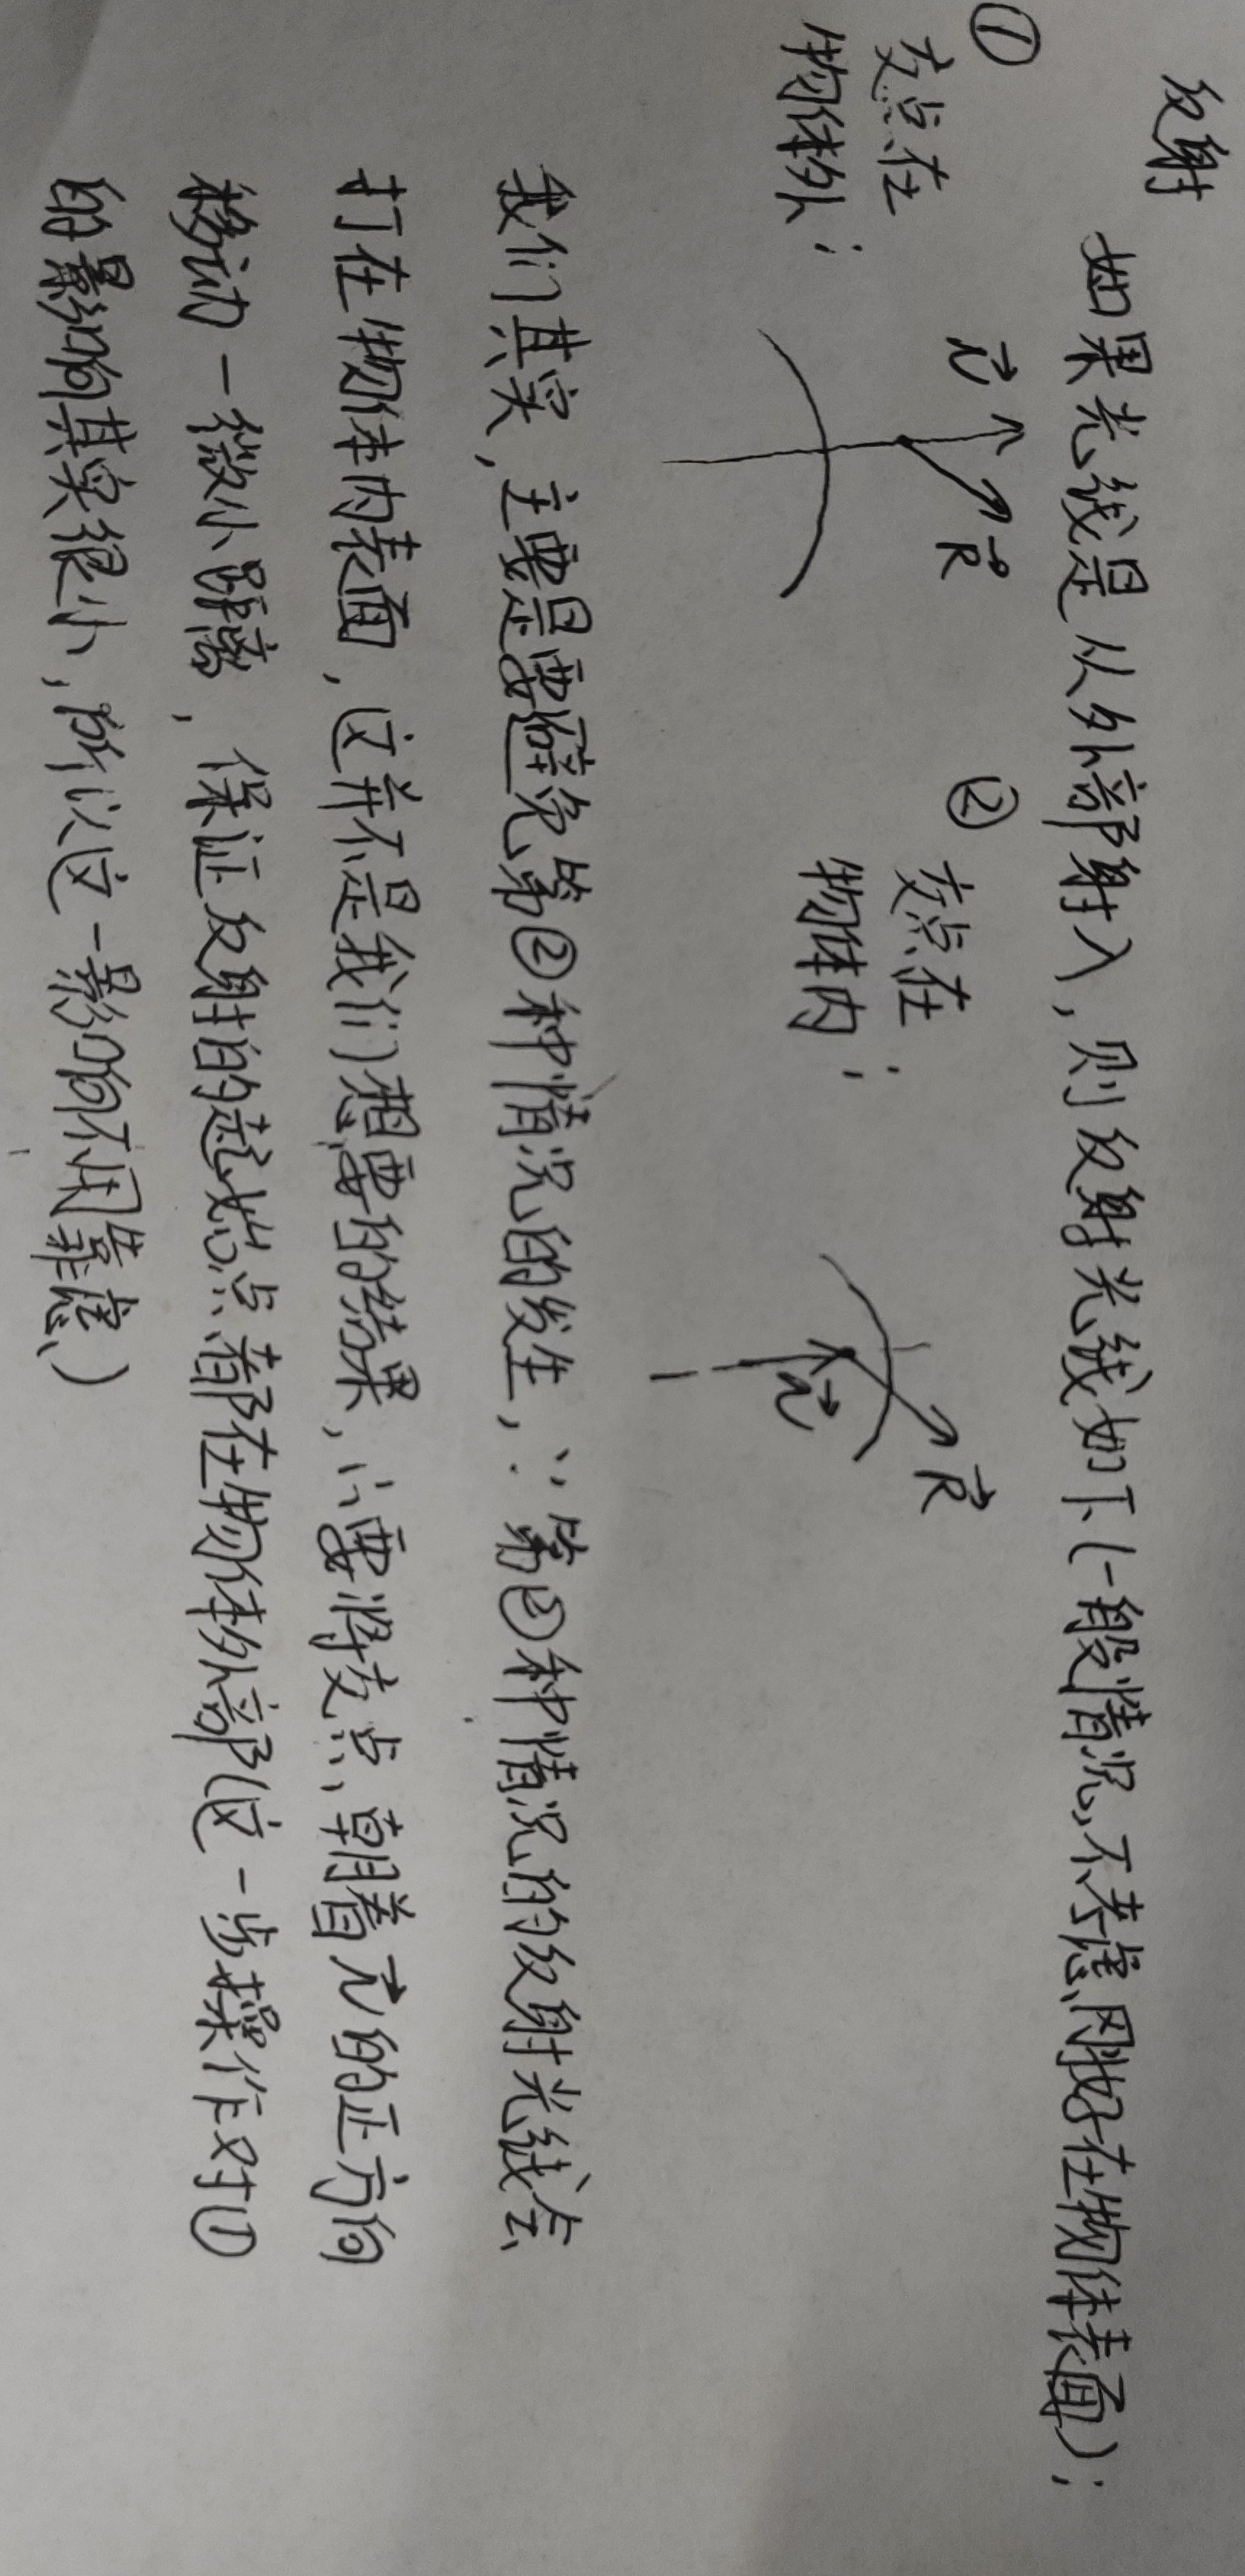 反射
如果光线是从外部射入,则反射光线如下(一般情况,不考虑刚好在物体表面);
①
交点在
物体外;
N R
②
交点在
物体内;
R
N
我们其实,主要是要避免第②种情况的发生,∵第②种情况的反射光线会
打在物体内表面,这并不是我们想要的结果,∴要将交点朝着N的正方向
移动一微小距离,保证反射的起始点都在物体外部(这一步操作对①
的影响其实很小,所以这一影响不用靠虑)